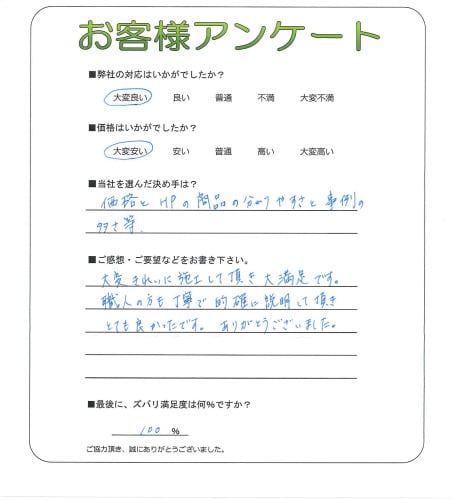 お客様アンケート
■弊社の対応はいかがでしたか？
大変良い 良い 普通 不満 大変不満
■価格はいかがでしたか？
大変安い 安い 普通 高い 大変高い
■当社を選んだ決め手は？
価格と HPの商品の分かりやすさと事例の
多さ等.
■ご感想・ご要望などをお書き下さい。
大変きれいに施工して頂き大満足です。
職人の方も丁寧で的確に説明して頂き
とても良かったです。ありがとうございました。
■最後に、ズバリ満足度は何％ですか？
100 ％
ご協力頂き、誠にありがとうございました。